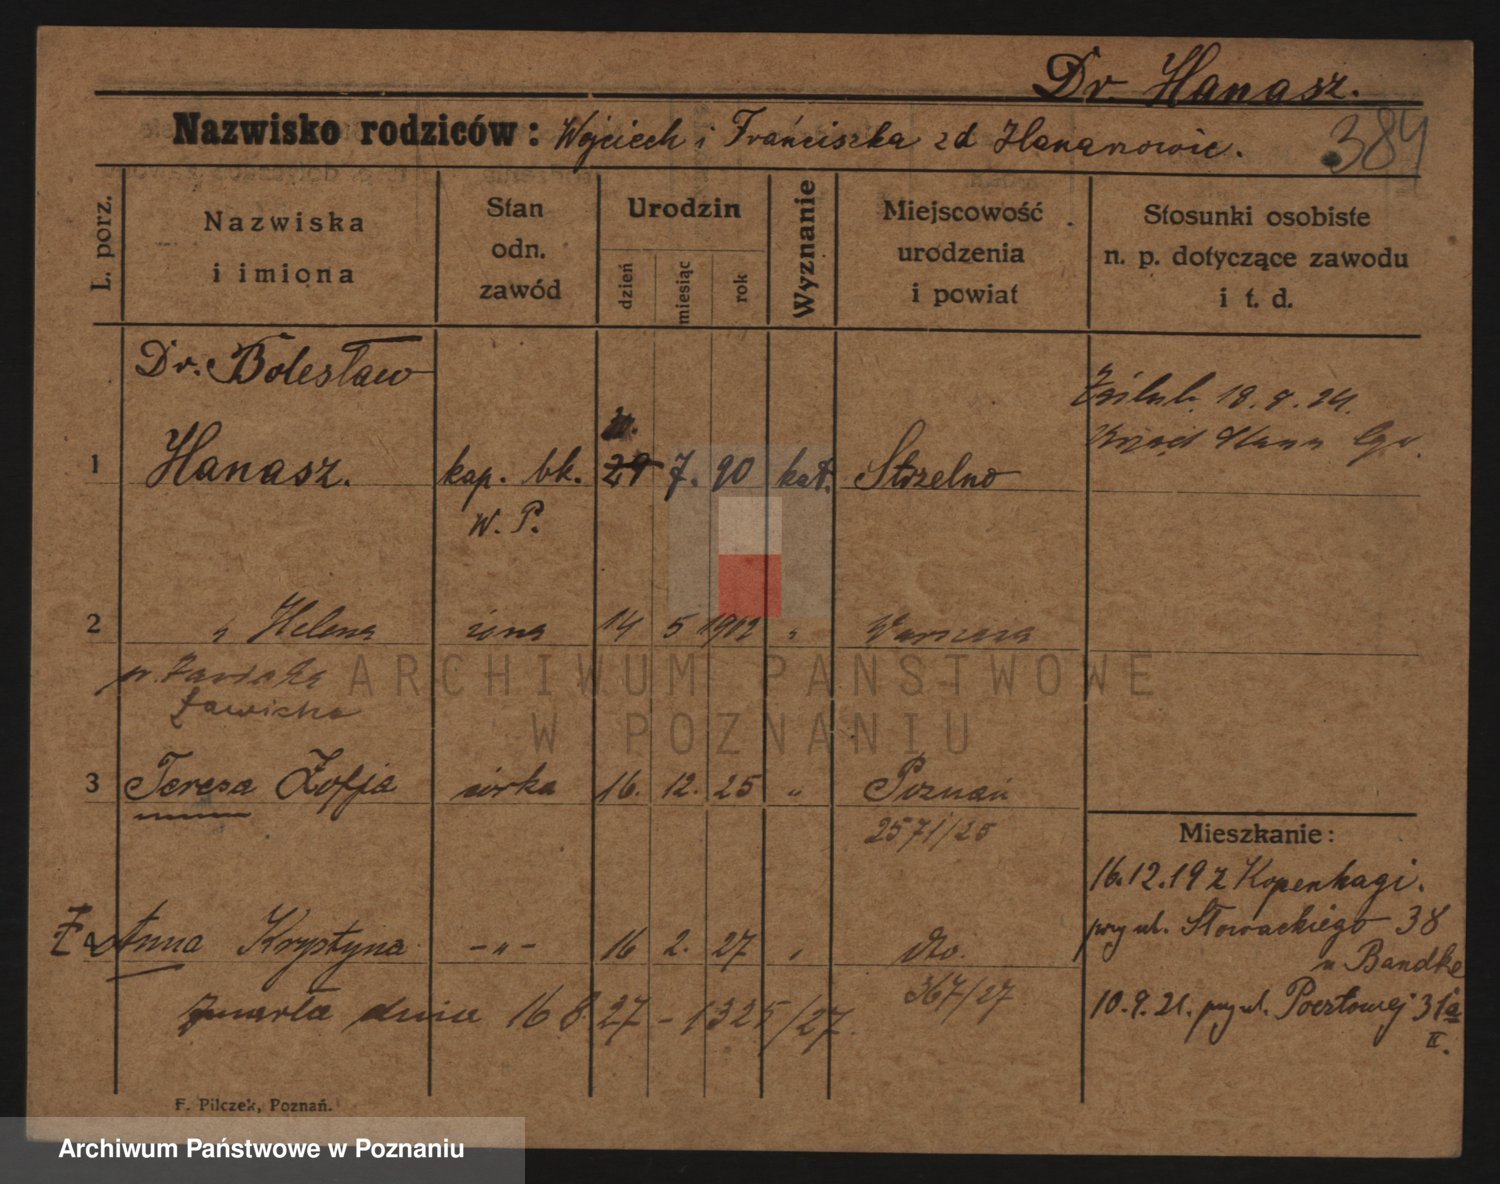 Dr. Hanasz.
384
Nazwisko rodziców: Wojciech i Franciszka zd Hananowic.
L. porz.
Nazwiska i imiona
Stan odn. zawód
Urodzin
dzień
miesiąc
rok
Wyznanie
Miejscowość urodzenia i powiat
Stosunki osobiste n. p. dotyczące zawodu i t. d.
Dr. Bolesław
18.9.24.
1 Hanasz. kap. bk. 29 7. 90 kat. Strzelno
W. P.
2 " Helena żona 14 5 1902 " Warszawa
Zawicka
ARCHIWUM PAŃSTWOWE
W POZNANIU
3 Teresa Zofja córka 16. 12. 25 " Poznań
2571/25
Mieszkanie:
16.12.19 z Kopenhagi.
przy ul. Słowackiego 38
u Bandke
4 Anna Krystyna -"- 16 2. 27 " dto.
367/27
zmarła dnia 16 8. 27 - 1325/27.
10.9.21. przy ul. Pocztowej 31a
II.
F. Pilczek, Poznań.
Archiwum Państwowe w Poznaniu